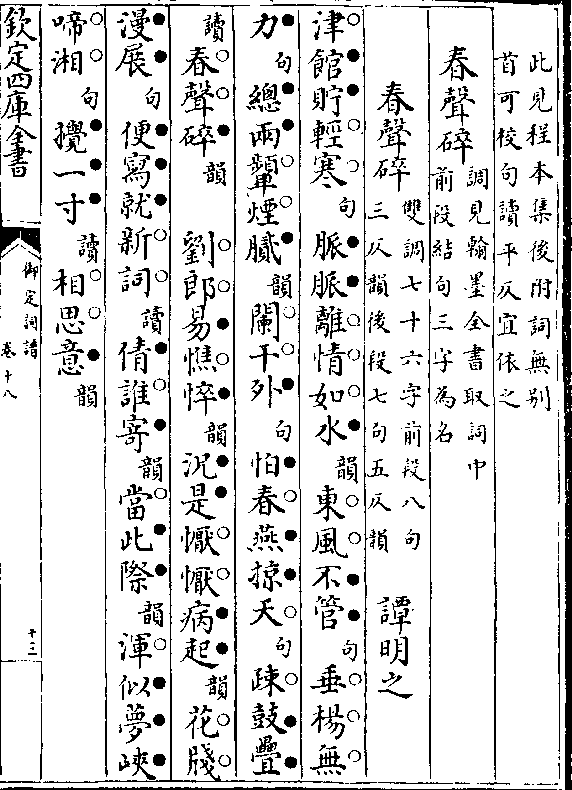 此見程本集後附詞無別
首可校句讀平仄宜依之
春聲碎 調見翰墨全書取詞中
前段結句三字為名
春聲碎 雙調七十六字前段八句
三仄韻後段七句五仄韻 譚明之
津館貯輕寒句脈脈離情如水韻東風不管句垂楊無
力句總雨顰煙膩韻闌干外句怕春燕掠天句疎鼓疊
讀春聲碎韻 劉郎易憔悴韻況是懨懨病起韻花牋
漫展句便寫就新詞讀倩誰寄韻當此際韻渾似夢峽
啼湘句攪一寸讀相思意韻
欽定四庫全書
御定詞譜
卷十八
十三